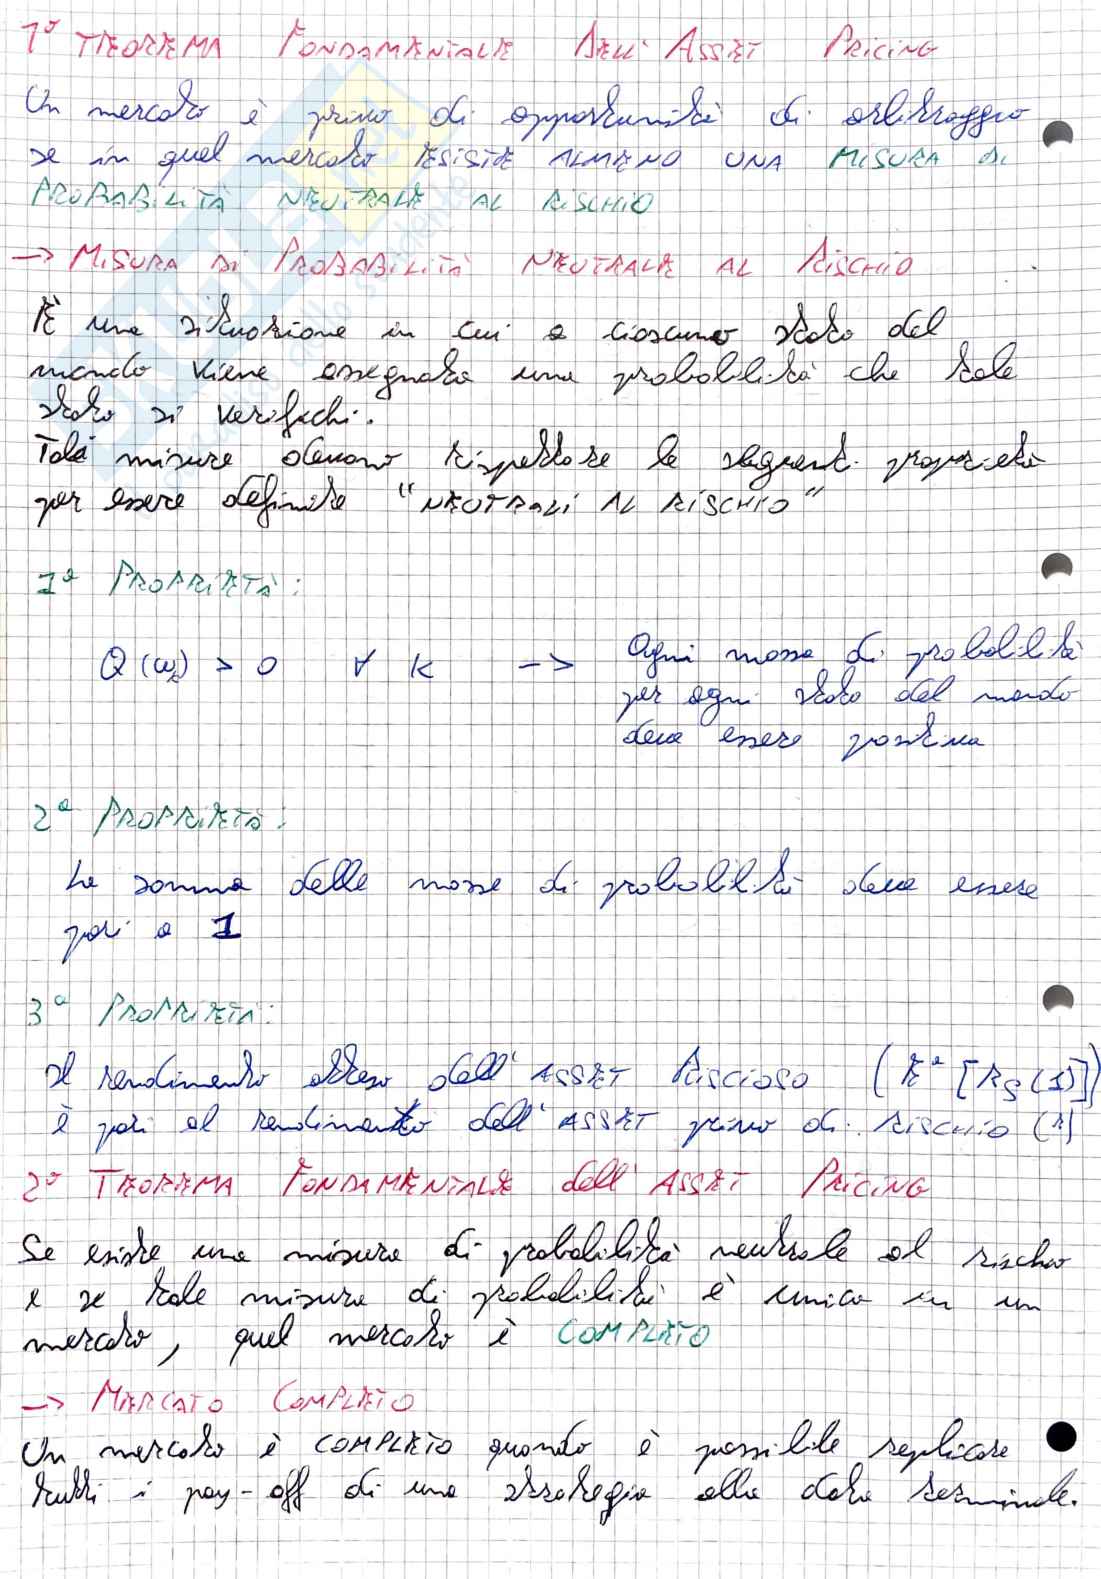 1° TEOREMA FONDAMENTALE DELL'ASSET PRICING
Un mercato è privo di opportunità di arbitraggio
se in quel mercato ESISTE ALMENO UNA MISURA DI
PROBABILITÀ NEUTRALE AL RISCHIO
-> MISURA DI PROBABILITÀ NEUTRALE AL RISCHIO
È una situazione in cui a ciascuno stato del
mondo viene assegnata una probabilità che tale
stato si verifichi.
Tali misure devono rispettare le seguenti proprietà
per essere definite "NEUTRALI AL RISCHIO"
1ª PROPRIETÀ:
Q(ωk) > 0 ∀ K -> Ogni massa di probabilità
per ogni stato del mondo
deve essere positiva
2ª PROPRIETÀ:
La somma delle masse di probabilità deve essere
pari a 1
3ª PROPRIETÀ:
Il rendimento atteso dell'ASSET RISCIOSO (E^Q [R_S (1)])
è pari al rendimento dell'ASSET privo di RISCHIO (r)
2° TEOREMA FONDAMENTALE dell'ASSET PRICING
Se esiste una misura di probabilità neutrale al rischio
e se tale misura di probabilità è unica in un
mercato, quel mercato è COMPLETO
-> MERCATO COMPLETO
Un mercato è COMPLETO quando è possibile replicare
tutti i pay-off di una strategia alla data terminale.